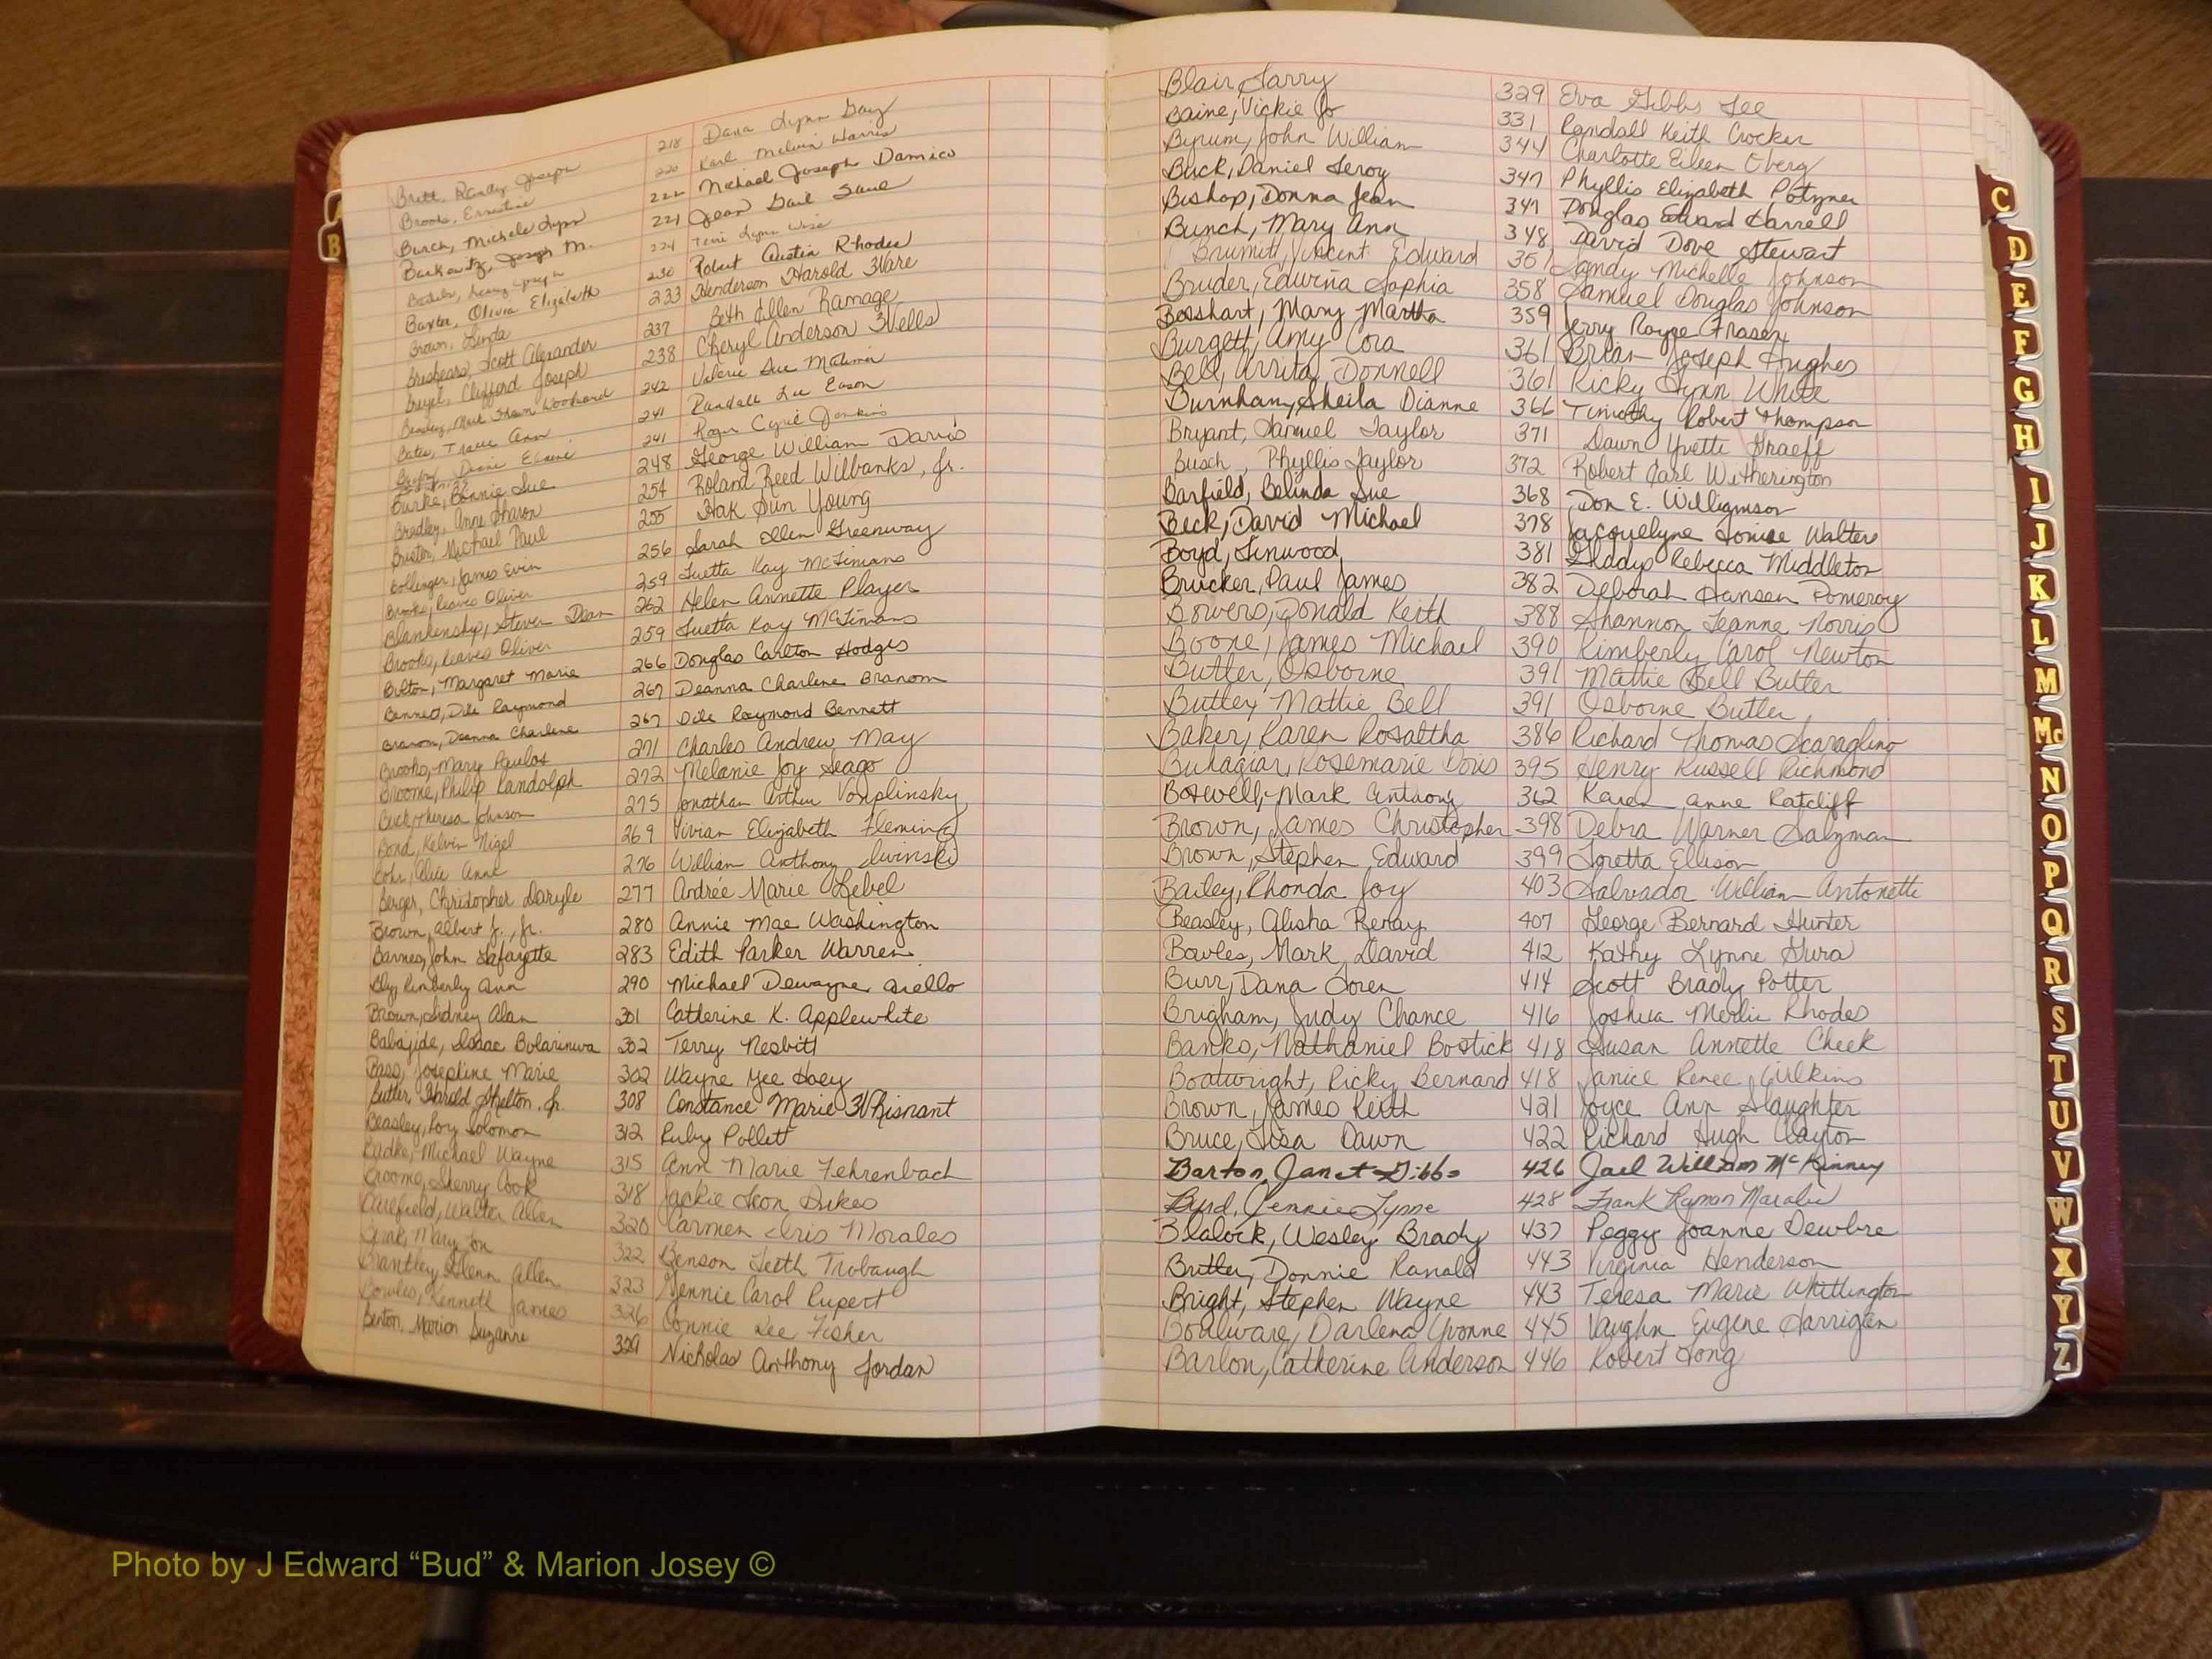 Britt, Randy Joseph 218 Dana Lynn Gay
Brooks, Ernestine 220 Karl Melvin Harris
Burch, Michele Lynn 222 Michael Joseph Damico
Berkowitz, Joseph M. 221 Jean Gail Saul
224 Terri Lynn Wise
Baxter, Olivia Elizabeth 230 Robert Austin Rhodes
Brown, Linda 233 Henderson Harold Ware
Breshears, Scott Alexander 237 Beth Ellen Ramage
Clifford Joseph 238 Cheryl Anderson Wells
Mark Shawn Woodward 242 Valerie Sue
Bates, Tracie Ann 241 Randall Lee Eason
Diane Elaine 241 Roger Cyril Jenkins
Burke, Bonnie Sue 248 George William Davis
Bradley, Anne Sharon 254 Roland Reed Wilbanks, Jr.
Brister, Michael Paul 255 Hak Sun Young
Bollinger, James Evin 256 Sarah Ellen Greenway
Brooks, Reaves Oliver 259 Luetta Kay McTimans
Blankenship, Steven Dean 262 Helen Annette Player
Brooks, Reaves Oliver 259 Luetta Kay McTimans
Bilton, Margaret Marie 266 Douglas Carlton Hodges
Bennett, Dile Raymond 267 Deanna Charlene Branom
Branom, Deanna Charlene 267 Dile Raymond Bennett
Brooks, Mary Paulos 271 Charles Andrew May
Broome, Philip Randolph 272 Melanie Joy Seago
Buck, Theresa Johnson 275 Jonathan Arthur Vonplinsky
Bond, Kelvin Nigel 269 Vivian Elizabeth Fleming
Bohr, Alice Anne 276 William Anthony Iwinski
Berger, Christopher Daryle 277 Andrée Marie Lebel
Brown, Albert J., Jr. 280 Annie Mae Washington
Barnes, John Lafayette 283 Edith Parker Warren
Bly, Kimberly Ann 290 Michael Dewayne Aiello
Brown, Sidney Alan 301 Catherine K. Applewhite
Babajide, Isaac Bolarinwa 302 Terry Nesbitt
Bass, Josephine Marie 302 Wayne Yee Hoey
Butler, Harold Shelton, Jr. 308 Constance Marie Whisnant
Beasley, Lory Solomon 312 Ruby Pollett
Badke, Michael Wayne 315 Ann Marie Fehrenbach
Broome, Sherry Cook 318 Jackie Leon Dukes
Barefield, Walter Allen 320 Carmen Iris Morales
Mary Lou 322 Benson Keith Trobaugh
Brantley, Glenn Allen 323 Jennie Carol Rupert
Bowles, Kenneth James 326 Connie Lee Fisher
Benton, Marion Suzanne 329 Nicholas Anthony Jordan
Blair, Larry 329 Eva Gibbs Lee
Baine, Vickie Jo 331 Randall Keith Crocker
Byrum, John William 344 Charlotte Eileen Oberg
Buck, Daniel Leroy 347 Phyllis Elizabeth Potzner
Bishop, Donna Jean 347 Douglas Edward Harrell
Bunch, Mary Ann 348 David Dove Stewart
Brumitt, Vincent Edward 351 Sandy Michelle Johnson
Bruder, Edwina Sophia 358 Samuel Douglas Johnson
Bosshart, Mary Martha 359 Jerry Royce Fraser
Burgett, Amy Cora 361 Brian Joseph Hughes
Bell, Arrita Donnell 361 Ricky Lynn White
Burnham, Sheila Dianne 366 Timothy Robert Thompson
Bryant, Samuel Taylor 371 Dawn Yvette Graeff
Busch, Phyllis Taylor 372 Robert Carl Witherington
Barfield, Belinda Sue 368 Don E. Williamson
Beck, David Michael 378 Jacquelyne Louise Walters
Boyd, Linwood 381 Gladys Rebecca Middleton
Brucker, Paul James 382 Deborah Hansen Pomeroy
Bowers, Donald Keith 388 Shannon Leanne Norris
Boone, James Michael 390 Kimberly Carol Newton
Butler, Osborne 391 Mattie Bell Butler
Butler, Mattie Bell 391 Osborne Butler
Baker, Karen Rosaltha 386 Richard Thomas Scaraglino
Buhagiar, Rosemarie Doris 395 Henry Russell Richmond
Boswell, Mark Antoony 362 Karen Anne Ratcliff
Brown, James Christopher 398 Debra Warner Salzman
Brown, Stephen Edward 399 Loretta Ellison
Bailey, Rhonda Joy 403 Salvador William Antonetti
Beasley, Alisha Renay 407 George Bernard Hunter
Bowles, Mark David 412 Kathy Lynne Gura
Burr, Dana Loren 414 Scott Brady Potter
Brigham, Judy Chance 416 Joshua Merlie Rhodes
Banks, Nathaniel Bostick 418 Susan Annette Cheek
Boatwright, Ricky Bernard 418 Janice Renee Wilkins
Brown, James Keith 421 Joyce Ann Slaughter
Bruce, Lisa Dawn 422 Richard Hugh Clayton
Barton, Janet Gibbs 426 Jael William McKinney
Byrd, Jennie Lynne 428 Frank Ryman Marable
Blalock, Wesley Brady 437 Peggy Joanne Dewbre
Butler, Donnie Ranald 443 Virginia Henderson
Bright, Stephen Wayne 443 Teresa Marie Whittington
Bouliware, Darlena Yvonne 445 Vaughn Eugene Harrigan
Barlon, Catherine Anderson 446 Robert Long
A
B
C
D
E
F
G
H
I
J
K
L
M
Mc
N
O
P
Q
R
S
T
U
V
W
X
Y
Z
Photo by J Edward “Bud” & Marion Josey ©